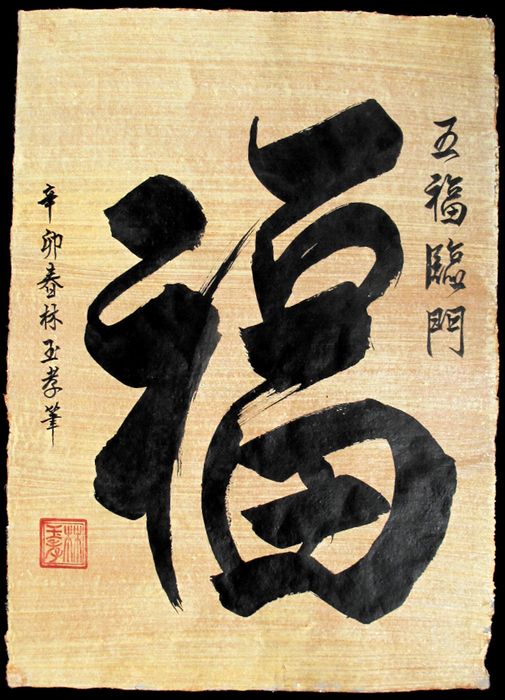 五福臨門
福
辛卯春林玉孝筆
林玉孝